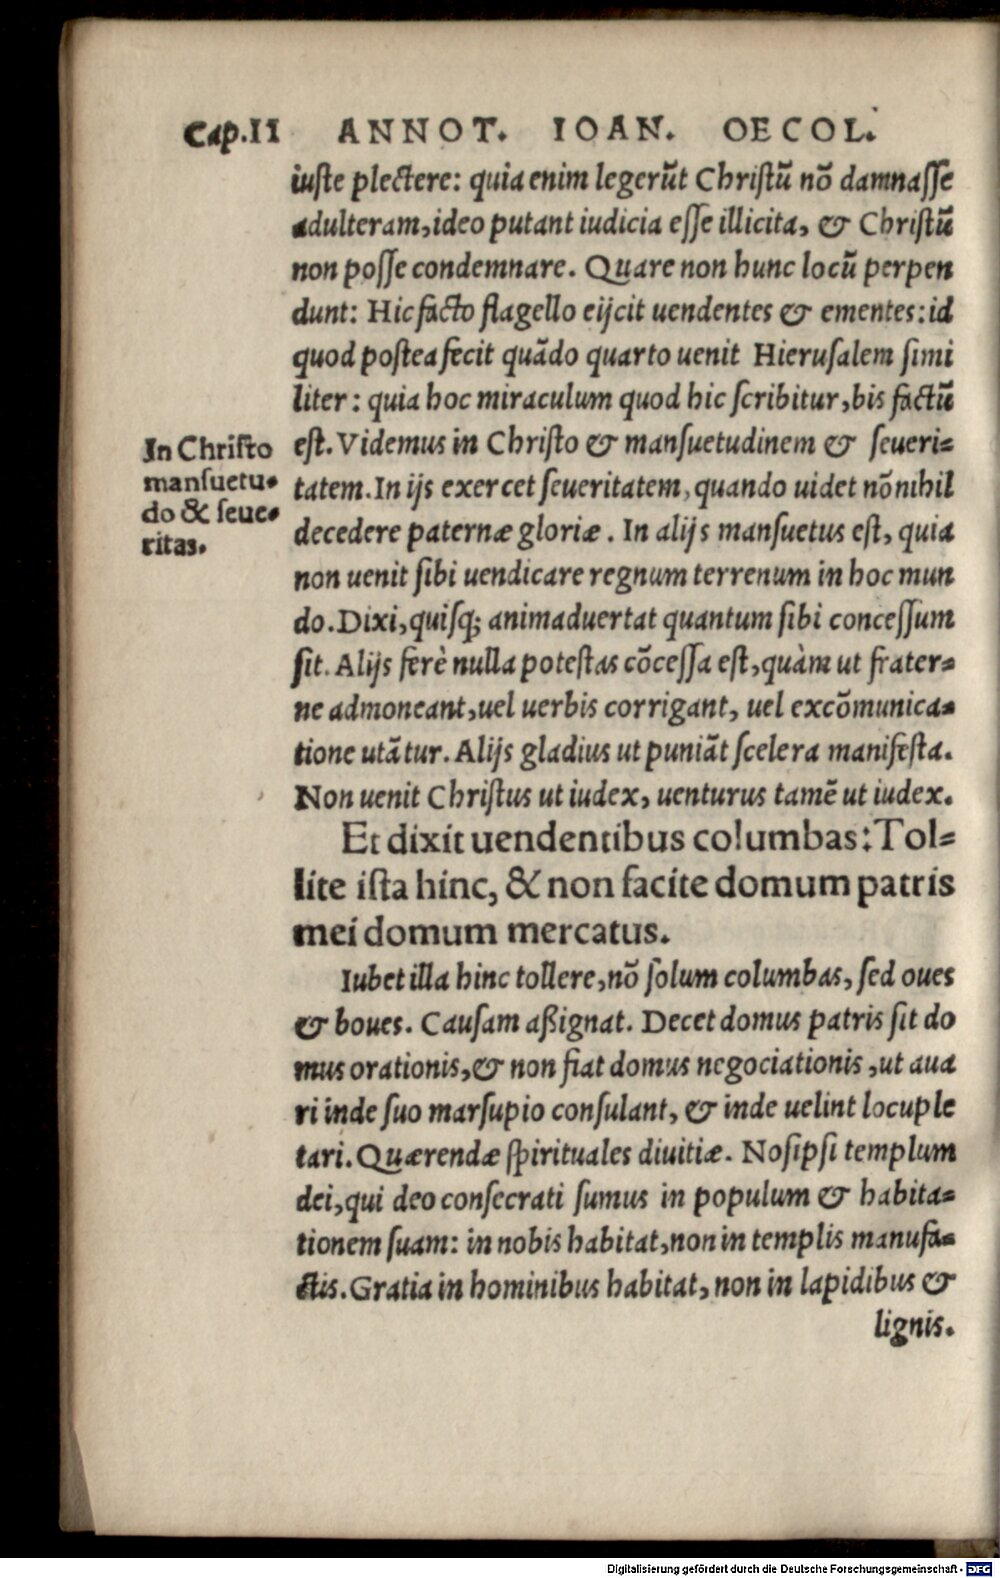 Cap.II ANNOT. IOAN. OECOL.
iuste plectere: quia enim legerũt Christũ nõ damnasse
adulteram, ideo putant iudicia esse illicita, & Christũ
non posse condemnare. Quare non hunc locũ perpen
dunt: Hic facto flagello eijcit uendentes & ementes: id
quod postea fecit quãdo quarto uenit Hierusalem simi
liter: quia hoc miraculum quod hic scribitur, bis factũ
est. Videmus in Christo & mansuetudinem & seueri=
tatem. In ijs exercet seueritatem, quando uidet nõnihil
decedere paternæ gloriæ. In alijs mansuetus est, quia
non uenit sibi uendicare regnum terrenum in hoc mun
do. Dixi, quisq; animaduertat quantum sibi concessum
sit. Alijs ferè nulla potestas cõcessa est, quàm ut frater=
ne admoneant, uel uerbis corrigant, uel excõmunica=
tione utãtur. Alijs gladius ut puniãt scelera manifesta.
Non uenit Christus ut iudex, uenturus tamẽ ut iudex.
In Christo
mansuetu=
do & seue=
ritas.
Et dixit uendentibus columbas: Tol=
lite ista hinc, & non facite domum patris
mei domum mercatus.
Iubet illa hinc tollere, nõ solum columbas, sed oues
& boues. Causam aßignat. Decet domus patris sit do
mus orationis, & non fiat domus negociationis, ut aua
ri inde suo marsupio consulant, & inde uelint locuple
tari. Quærendæ spirituales diuitiæ. Nosipsi templum
dei, qui deo consecrati sumus in populum & habita=
tionem suam: in nobis habitat, non in templis manufa=
ctis. Gratia in hominibus habitat, non in lapidibus &
lignis.
Digitalisierung gefördert durch die Deutsche Forschungsgemeinschaft - DFG